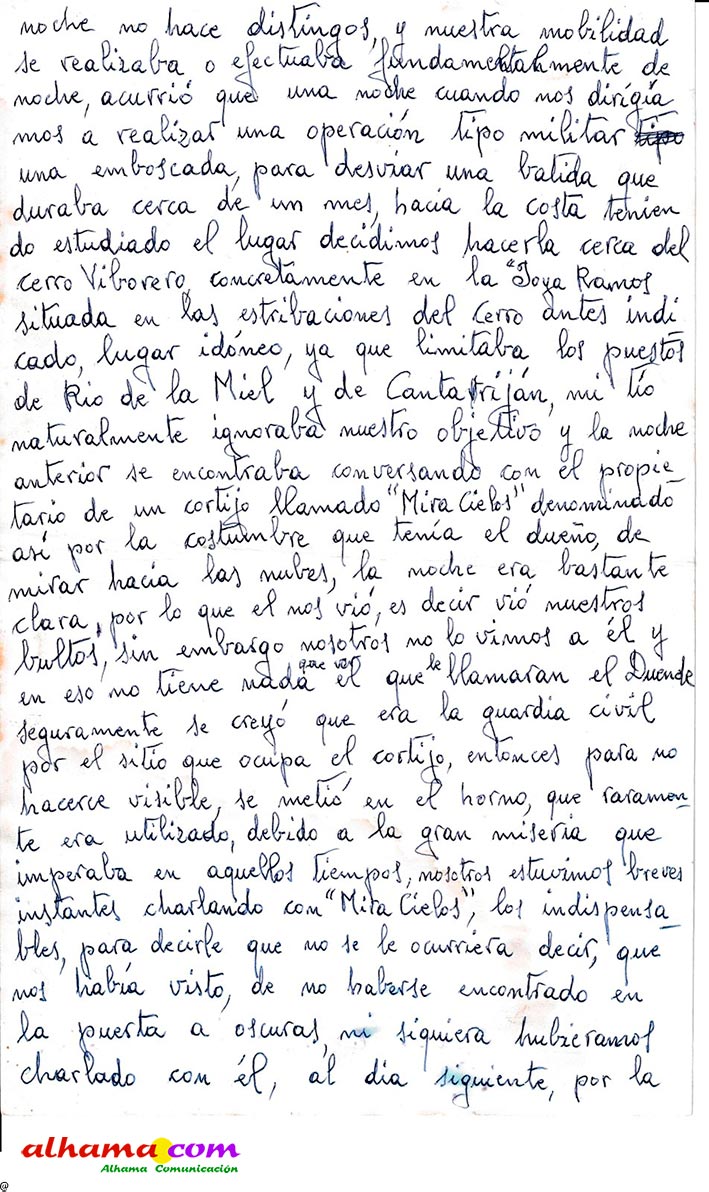 noche no hace distingos, y nuestra mobilidad
se realizaba o efectuaba fundamentahmente de
noche, acurrió que una noche cuando nos dirigía
mos a realizar una operación tipo militar tipo
una emboscada, para desviar una batida que
duraba cerca de un mes, hacia la costa tenien
do estudiado el lugar decidimos hacerla cerca del
cerro Viborero, concretamente en la "Joya Ramos
situada en las estribaciones del Cerro antes indi
cado, lugar idóneo, ya que limitaba los puestos
de Rio de la Miel y de Cantarriján, mi tío
naturalmente ignoraba nuestro objetivo y la noche
anterior se encontraba conversando con el propie-
tario de un cortijo llamado "Mira Cielos" denominado
así por la costumbre que tenía el dueño, de
mirar hacia las nubes, la noche era bastante
clara, por lo que el nos vió, es decir vió nuestros
bultos, sin embargo nosotros no lo vimos a él y
en eso no tiene nada que ver el que le llamaran el Duende
seguramente se creyó que era la guardia civil
por el sitio que ocupa el cortijo, entonces para no
hacerce visible, se metió en el horno, que raramen-
te era utilizado, debido a la gran miseria que
imperaba en aquellos tiempos, nosotros estuvimos breves
instantes charlando con "Mira Cielos", los indispensa-
bles, para decirle que no se le ocurriera decir, que
nos había visto, de no haberse encontrado en
la puerta a oscuras, ni siquiera hubieramos
charlado con él, al dia siguiente, por la
alhama.com
Alhama Comunicación
@